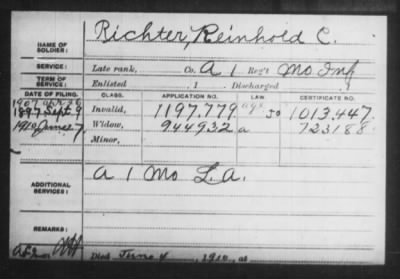 Richter, Reinhold C.
NAME OF SOLDIER:
SERVICE: Late rank, Co. A 1 Reg't Mo Inf
TERM OF SERVICE: Enlisted , 1 Discharged , 1
DATE OF FILING. CLASS. APPLICATION NO. LAW. CERTIFICATE NO.
1907
1897 Sept 9 Invalid, 1197.779 age 1013.447
1910 June 7 Widow, 944932 a 723188
Minor,
ADDITIONAL SERVICES: A 1 Mo L.A.
REMARKS:
Died June 4, 1910, at